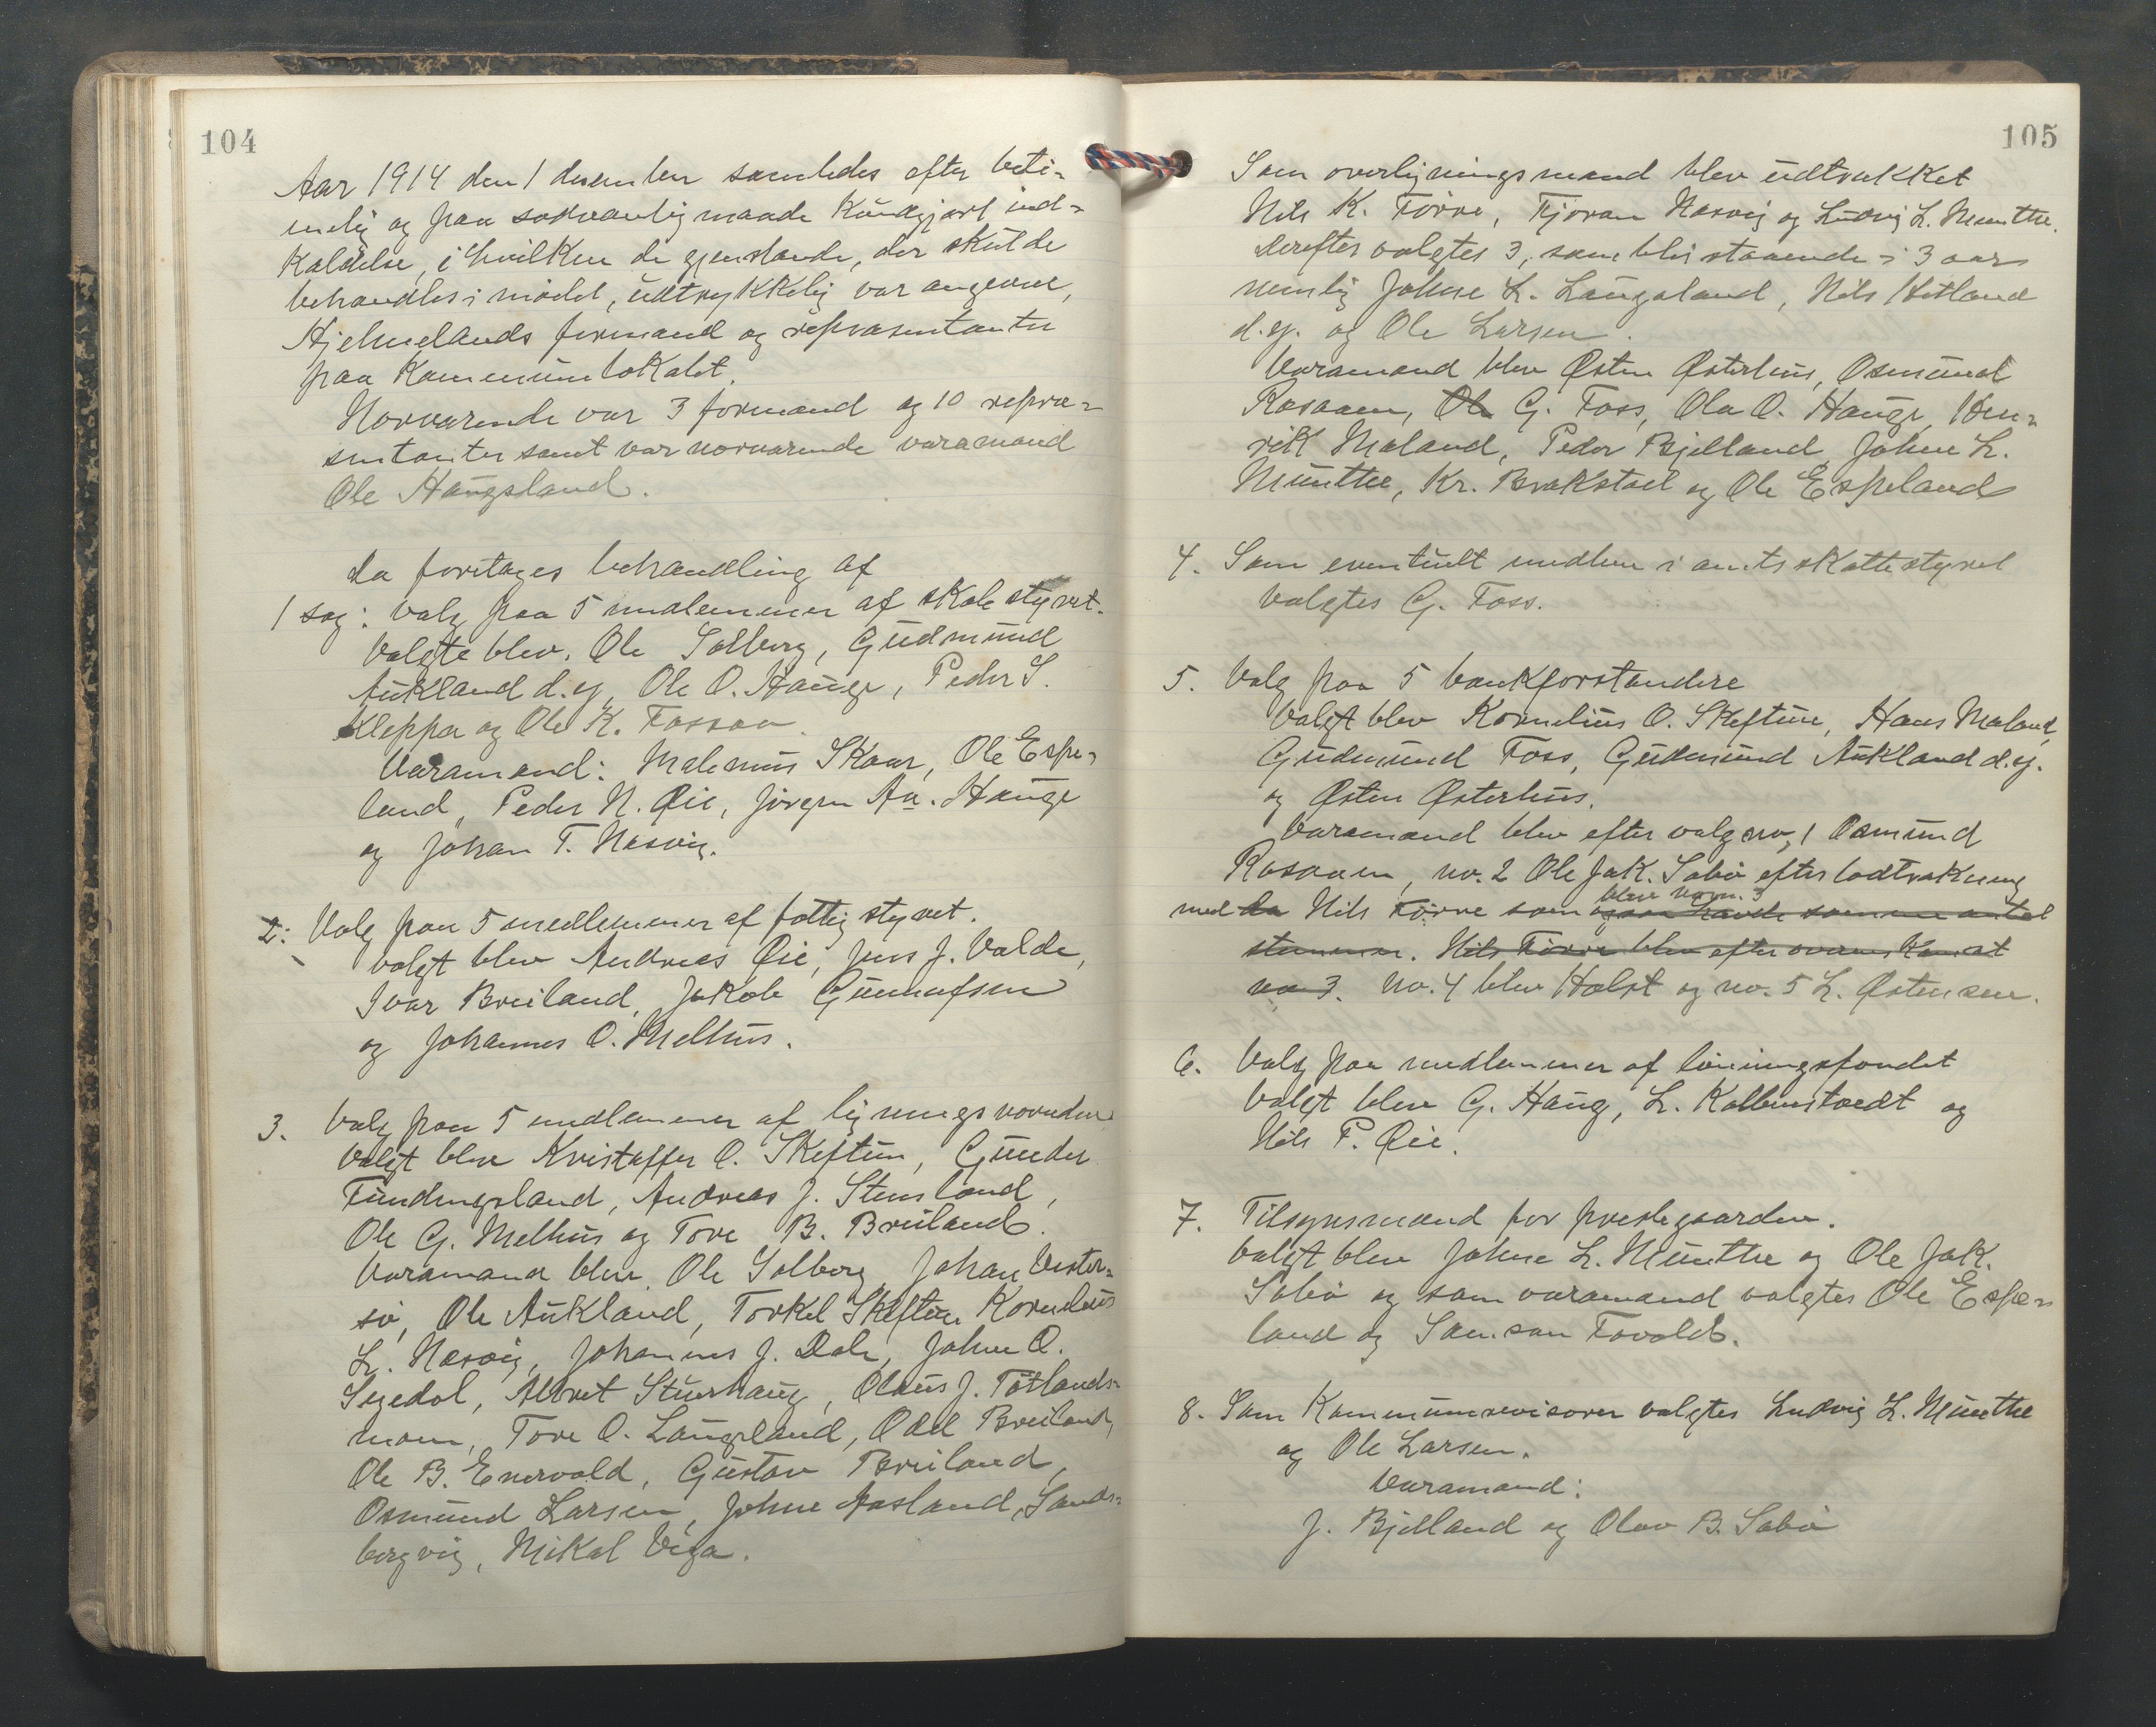 104
Aar 1914 den 1 desember samledes efter beti-
melig og paa sedvanlig maade kundgjort ind-
kaldelse, i hvilken de gjenstande, der skulde
behandles i mødet, udtrykkelig var angevne,
Hjelmelands formænd og repræsentanter
paa Kommunelokalet.
Nærværende var 3 formænd og 10 repræ-
sentanter samt var nærværende varamand
Ole Haugsland.
Da foretages behandling af
1 sag: Valg paa 5 medlemmer af skolestyret.
Valgte blev. Ole Solberg, Gudmund
Aukland d.y, Ole O. Hauge, Peder S.
Kleppa og Ole K. Fossaa.
Varamænd: Malenius Skaar, Ole Espe-
land, Peder N. Øie, Jørgen Aa. Hauge
og Johan T. Nesvig.
2: Valg paa 5 medlemmer af fattigstyret.
Valgt blev Andreas Øie, Jens J. Valde,
Ivar Breiland, Jakob Gunnufsen
og Johannes O. Melhus.
3. Valg paa 5 medlemmer af ligningsnævnden
Valgt blev Kristoffer O. Skeftun, Gunder
Fundingsland, Andreas J. Stensland,
Ole G. Melhus og Tore B. Breiland.
Varamænd blev. Ole Solberg, Johan Vester-
sø, Ole Aukland, Torkel Skeftun Kornelius
L. Nesvig, Johannes J. Dale, Johne O.
Segedal, Albret Sturhaug, Olaus J. Tøtlands-
moen, Tore O. Laugaland, Odd Breiland,
Ole B. Enervold, Gustav Breiland,
Osmund Larsen, Johne Aasland, Sand-
bergvig, Mikal Viga.
105
Som overligningsmænd blev udtrukket
Nils K. Førre, Tjøran Nesvig og Ludvig L. Munthe.
Derefter valgtes 3, som blir staaende i 3 aar
nemlig Johne L. Laugaland, Nils Hetland
d.y. og Ole Larsen.
Varamænd blev Østen Østerhus, Osmund
Rosaaen, Ole G. Foss, Ola O. Hauge, Hen-
rik Maland, Peder Bjelland, Johne L.
Munthe, Kr. Brækstad og Ole Espeland
4. Som eventuelt medlem i amtsskattestyret
valgtes G. Foss.
5. Valg paa 5 bankforstandere
Valgt blev Kornelius O. Skeftun, Hans Maland,
Gudmund Foss, Gudmund Aukland d.y.
og Østen Østerhus.
Varamænd blev efter valg no, 1 Osmund
Rosaaen, no. 2 Ole Jak. Sabø efter lodtrækning
blev vara. 3
med da Nils Førre som ogsaa havde samme antal
stemmer. Nils Førre blev efter ovens kom at
no 3. No. 4 blev Holst og no. 5 L. Østensen.
6. Valg paa medlemmer af lønningsfondet
Valgt blev G. Haug, L. Kolbenstvedt og
Nils P. Øie.
7. Tilsynsmænd for prestegaarden.
Valgt blev Johne L. Munthe og Ole Jak.
Sabø og som varamænd valgtes Ole Espe-
land og Samson Tovald.
8. Som Kommunerevisorer valgtes Ludvig L. Munthe
og Ole Larsen.
Varamænd:
J. Bjelland og Olav B. Sabø